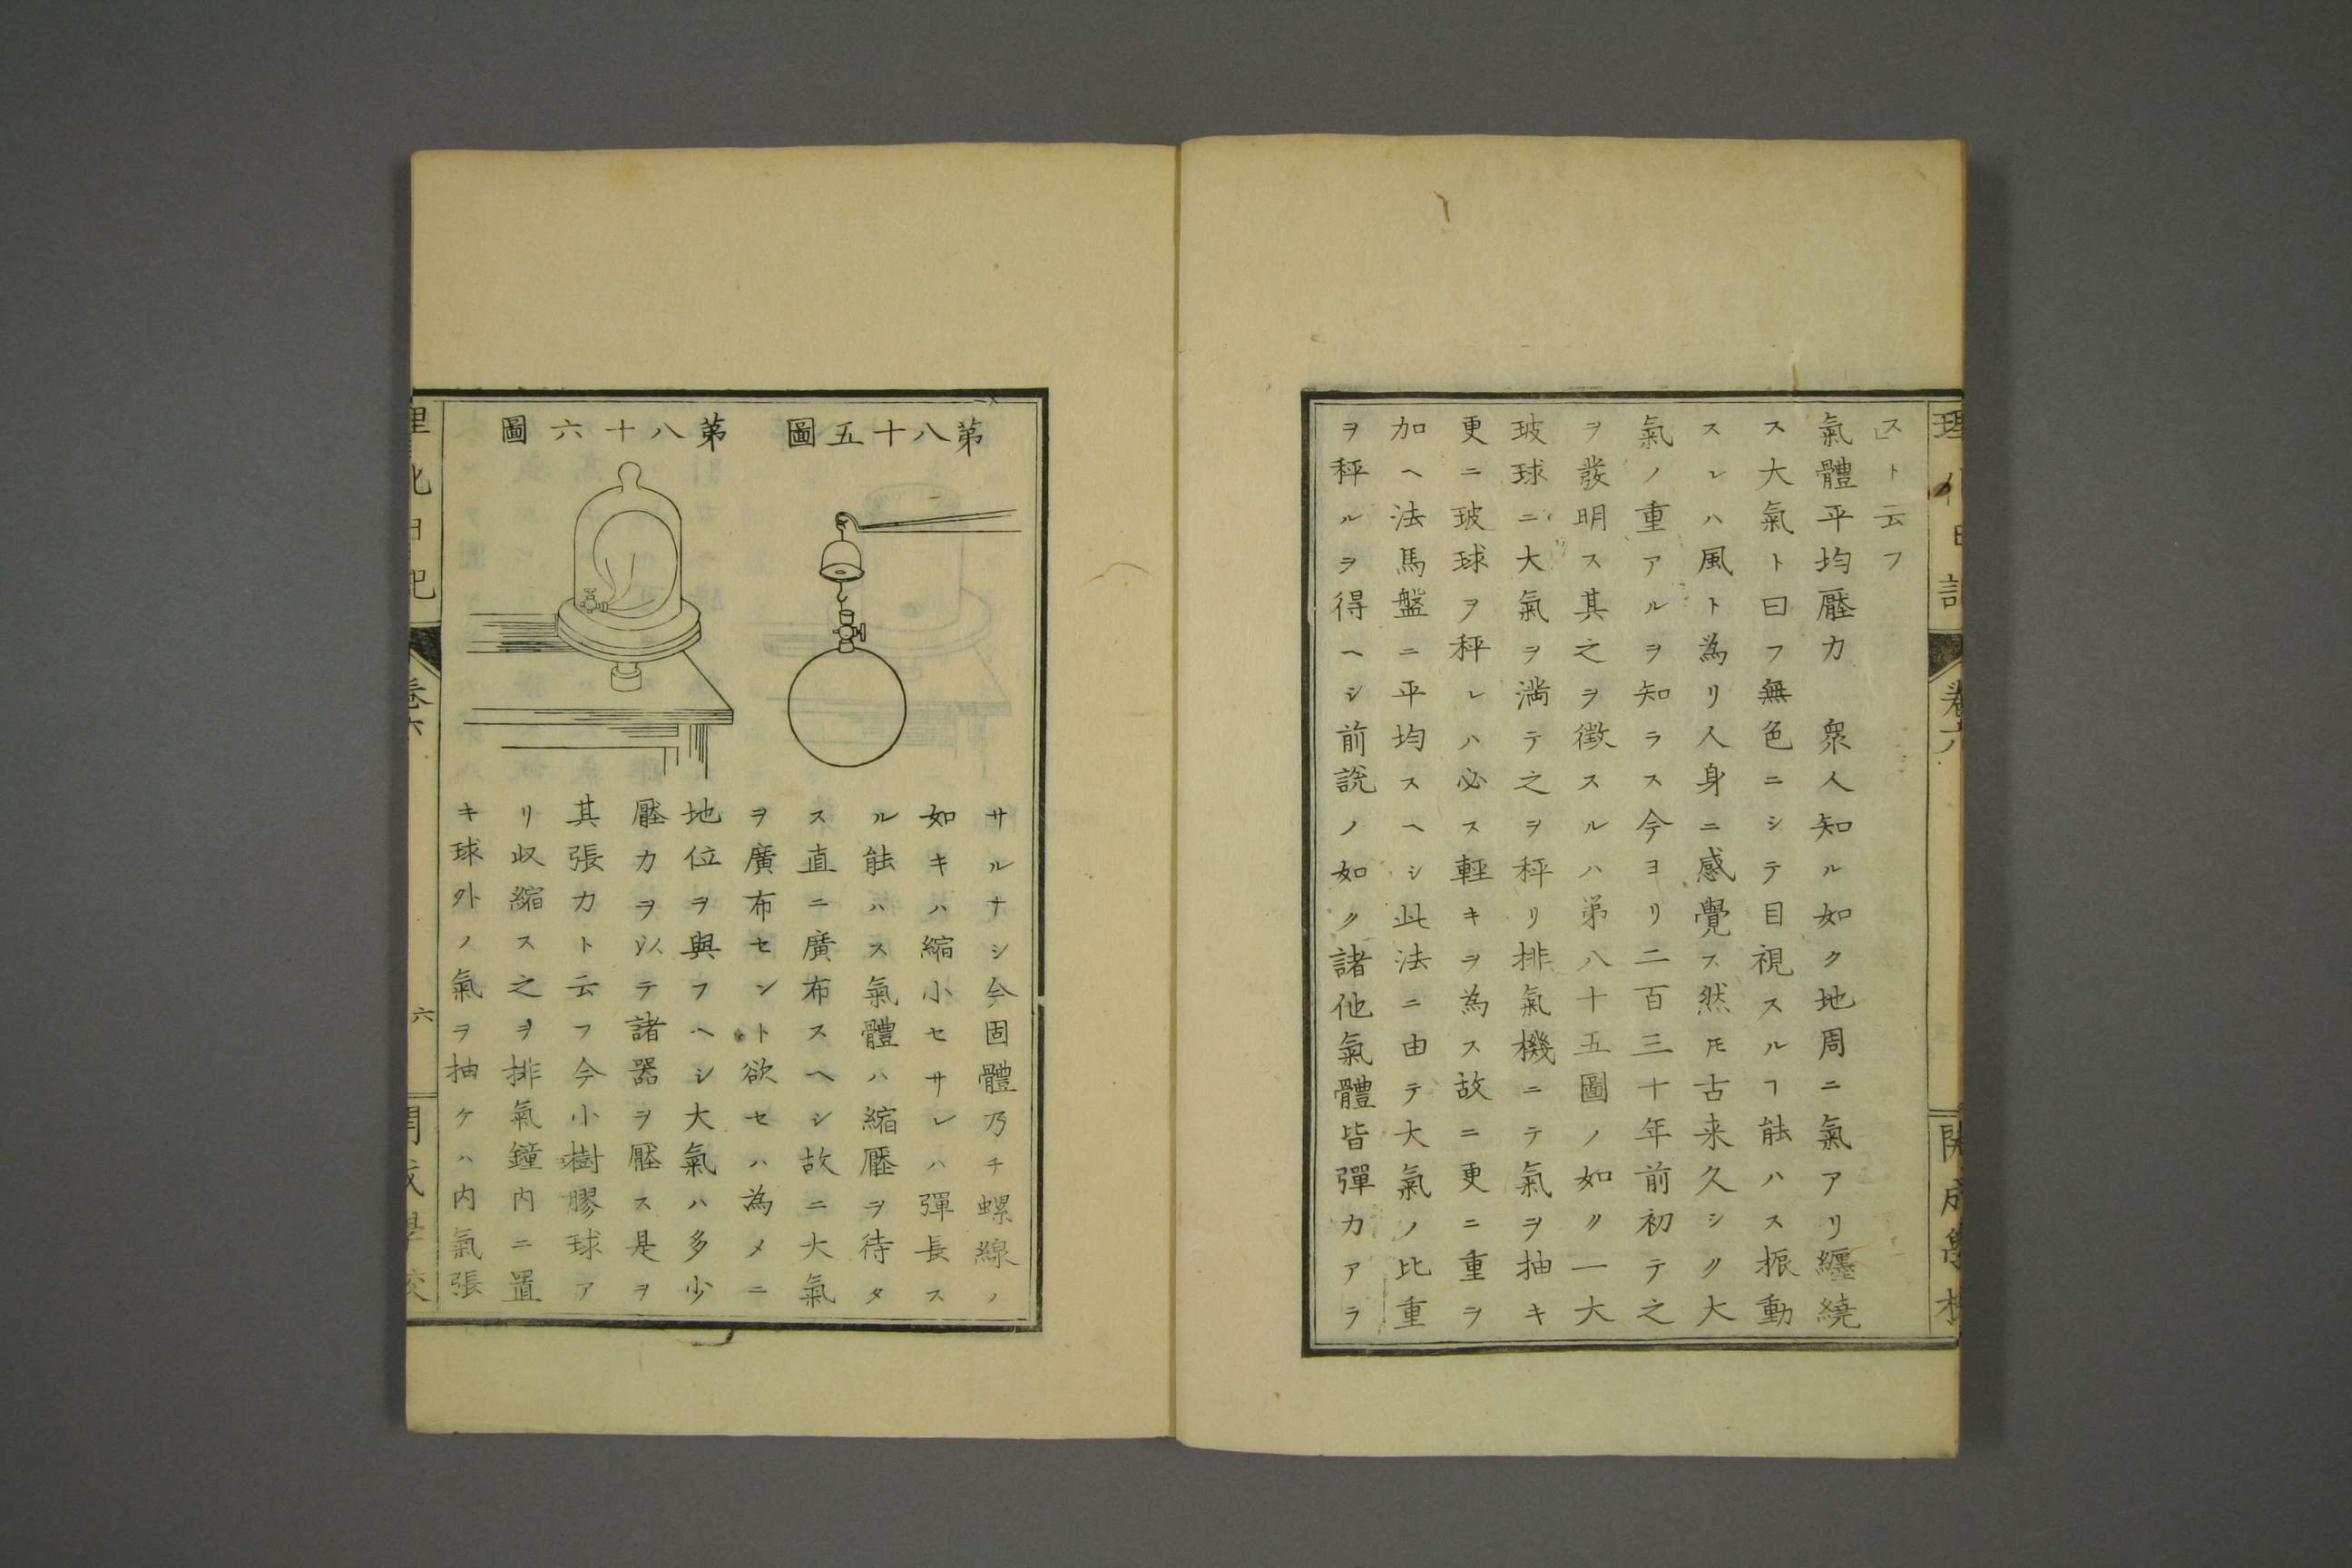 スト云フ
氣體平均壓力　衆人知ル如ク地周ニ氣アリ纏繞
ス大氣ト曰フ無色ニシテ目視スルヿ能ハス振動
スレハ風ト為リ人身ニ感覺ス然𪜈古来久シク大
氣ノ重アルヲ知ラス今ヨリ二百三十年前初テ之
ヲ發明ス其之ヲ徴スルハ第八十五圖ノ如ク一大
玻球ニ大氣ヲ満テ之ヲ秤リ排氣機ニテ氣ヲ抽キ
更ニ玻球ヲ秤レハ必ス輕キヲ為ス故ニ更ニ重ヲ
加ヘ法馬盤ニ平均スヘシ此法ニ由テ大氣ノ比重
ヲ秤ルヲ得ヘシ前說ノ如ク諸他氣體皆彈力アラ
理化日記
卷六
開成學校
第八十五圖
第八十六圖
サルナシ今固體乃チ螺線ノ
如キハ縮小セサレハ彈長ス
ル能ハス氣體ハ縮壓ヲ待タ
ス直ニ廣布スヘシ故ニ大氣
ヲ廣布セント欲セハ為メニ
地位ヲ與フヘシ大氣ハ多少
壓力ヲ以テ諸器ヲ壓ス是ヲ
其張力ト云フ今小樹膠球ア
リ収縮ス之ヲ排氣鐘内ニ置
キ球外ノ氣ヲ抽ケハ内氣張
理化日記
卷六
六
開成學校